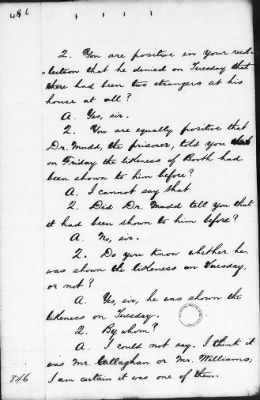 486
2. You are positive in your recol-
-lection that he denied on Tuesday that
there had been two strangers at his
house at all?
A. Yes, sir.
2. You are equally positive that
Dr. Mudd, the prisoner, told you
on Friday the likeness of Booth had
been shown to him before?
A. I cannot say that
2. Did Dr. Mudd tell you that
it had been shown to him before?
A. No, sir.
2. Do you know whether he
was shown the likeness on Tuesday,
or not?
A. Yes, sir, he was shown the
likeness on Tuesday.
2. By whom?
A. I could not say. I think it
was Mr. Callaghan or Mr. Williams;
I am certain it was one of them.
846